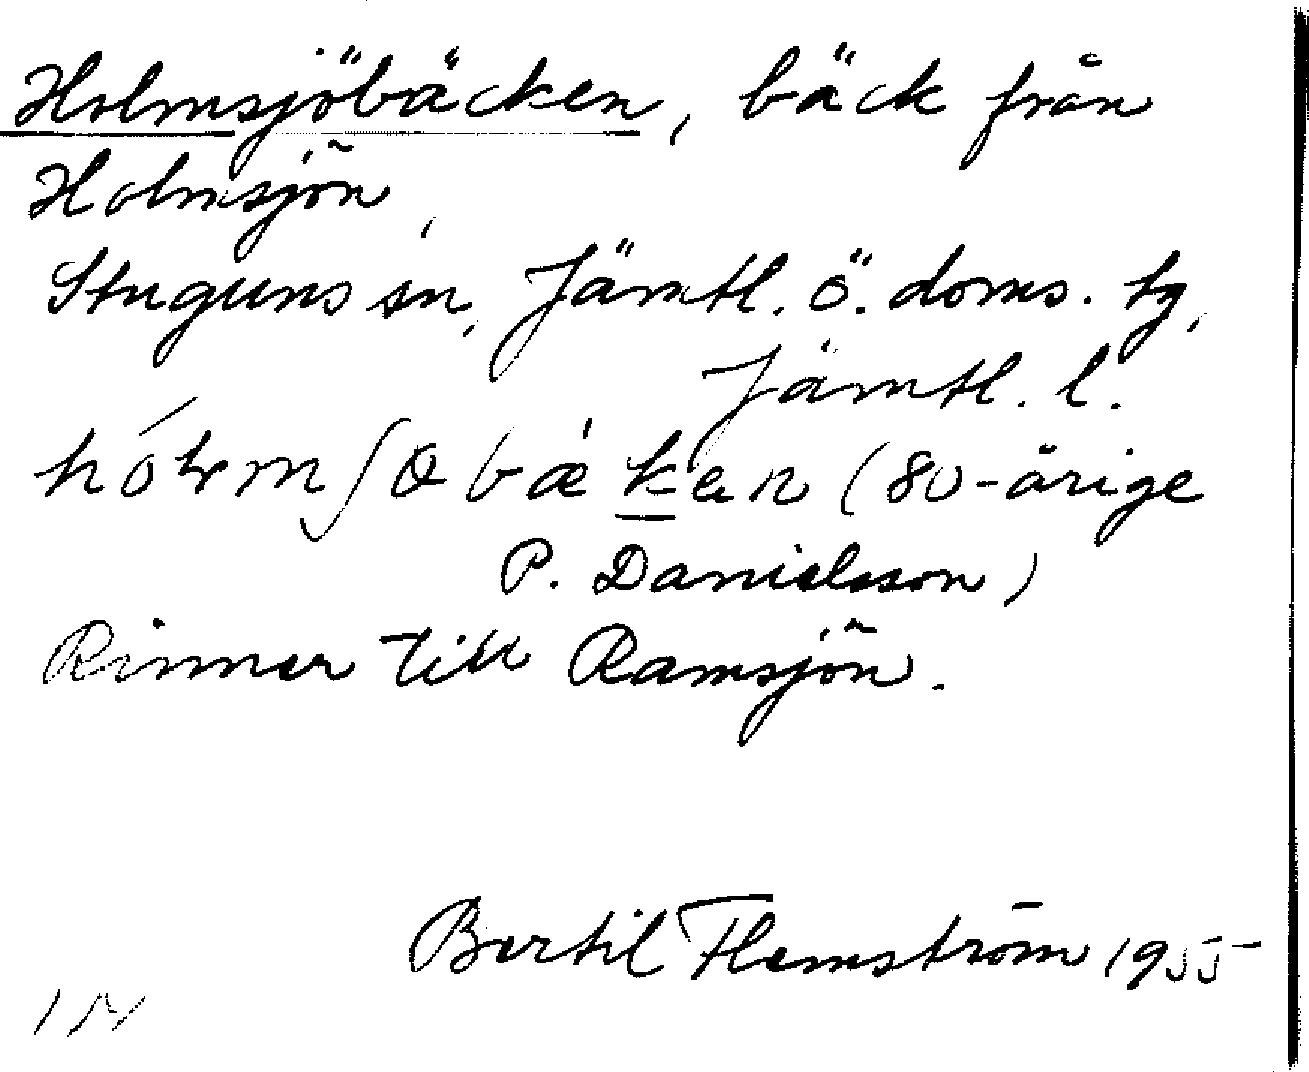 Holmsjöbäcken, bäck från
Holmsjön,
Stuguns sn, Jämtl. ö. doms. tg,
Jämtl. l.
(80-årige
P. Danielsson)
Rinner till Ramsjön.
Bertil Flemström 1955